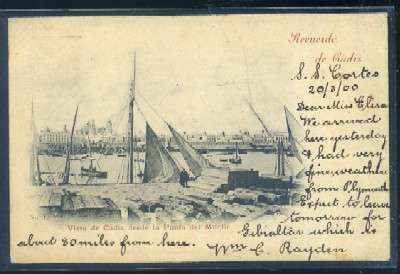 Recuerdo
de Cadiz
S. S. Cortes
20/3/00
Dear Miss Clira
We arrived
here yesterday
& had very
fine weather
from Plymouth
Expect to leave
tomorrow for
Gibraltar which is
about 80 miles from here.
Wm C. Rayden
Vista de Cadiz desde la Punta del Muelle